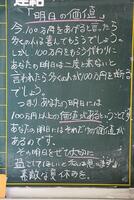 連絡
「明日の価値」
今、100万円をあげると言ったら
多くの人は喜んでもらうでしょう。
しかし、100万をもらう代わりに
あなたの明日は二度と来ないと
言われたら多くの人が100万を断る
でしょう。
つまりあなたの明日には
100万円以上の価値があるということです。
あなたの明日にはそれだけの価値が
あるのです。
その明日をぜひ大切に
過ごしてほしいと私は思います。
素敵な夏休みを。